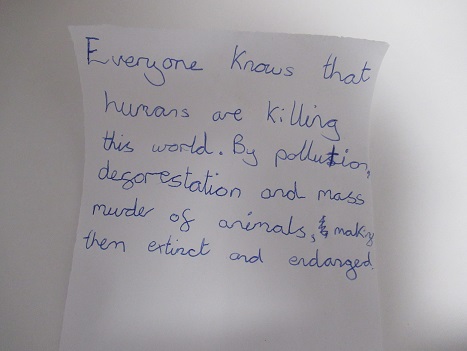 Everyone knows that
humans are killing
this world. By pollution,
degorestation and mass
murder of animals, & making
them extinct and endanged.